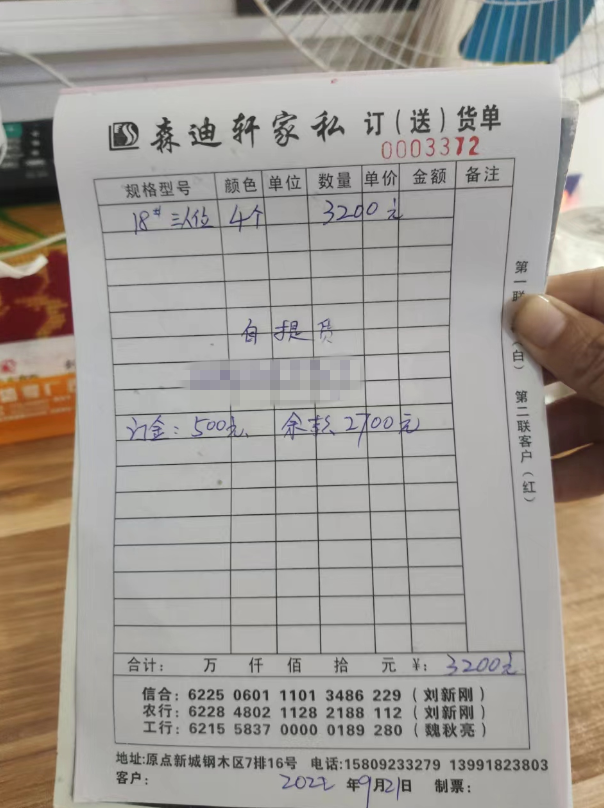 森迪轩家私 订(送)货单
0003372
规格型号 颜色 单位 数量 单价 金额 备注
18# 三人位 4个 3200元
自提货
订金:500元、 余款2700元
合计: 万 仟 佰 拾 元 ¥: 3200元
信合:6225 0601 1101 3486 229(刘新刚)
农行:6228 4802 1128 2188 112(刘新刚)
工行:6215 5837 0000 0189 280(魏秋亮)
地址:原点新城钢木区7排16号 电话:15809233279 13991823803
客户: 2022年9月21日 制票:
第一联 (白) 第二联客户(红)